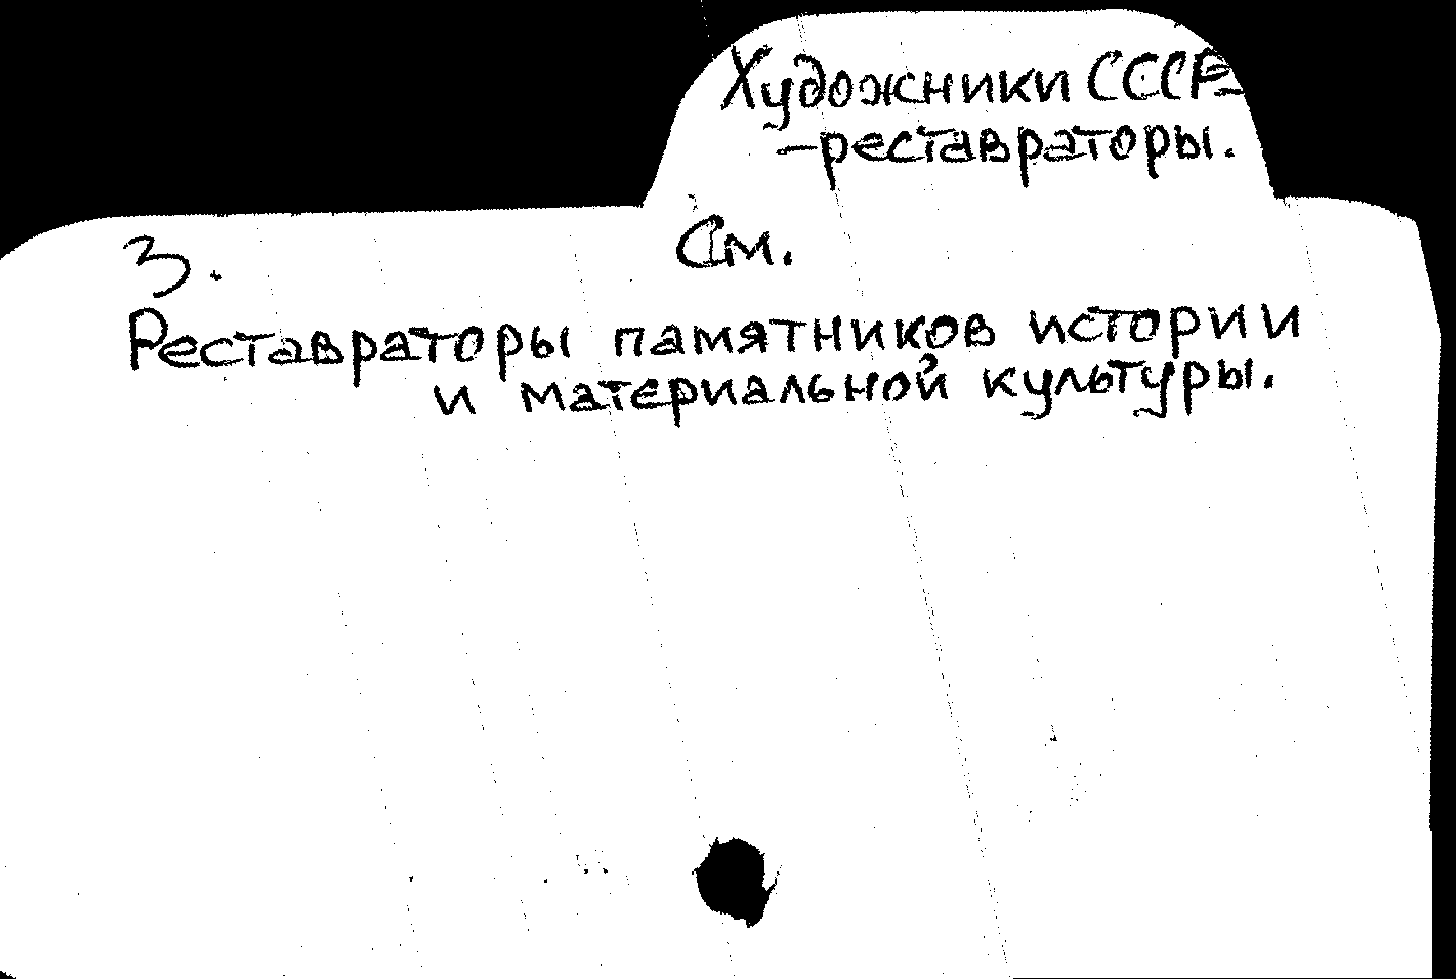 Художники СССР-
-реставраторы.
3. См.
Реставраторы памятников истории
и материальной культуры.